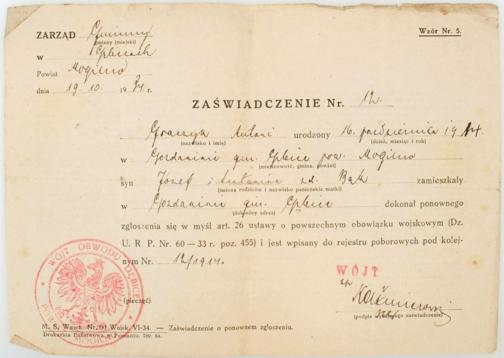 ZARZĄD Gminny Wzór Nr. 5.
(gminny (miejski)
w Gębicach
Powiat Mogilno
dnia 19.10 1934 r.
ZAŚWIADCZENIE Nr. 12.
Graczyk Antoni urodzony 16. października 1914.
(nazwisko i imię) (dzień, miesiąc i rok)
w Gozdaninie gm. Gębice pow. Mogilno
(miejscowość, gmina, powiat)
syn Józef i Antonina zd. Bąk zamieszkały
(imiona rodziców i nazwisko panieńskie matki)
w Gozdaninie gm. Gębice dokonał ponownego
(dokładny adres)
zgłoszenia się w myśl art. 26 ustawy o powszechnym obowiązku wojskowym (Dz.
U. R P. Nr. 60—33 r. poz. 455) i jest wpisany do rejestru poborowych pod kolej-
nym Nr. 12/1914.
WÓJT
(pieczęć)
(podpis zaświadczenie)
WÓJT OBWODU GĘBICE
M. S. Wewn. Nr. Wojsk. VI-34. — Zaświadczenie o ponownem zgłoszeniu.
Drukarnia Państwowa w Poznaniu.